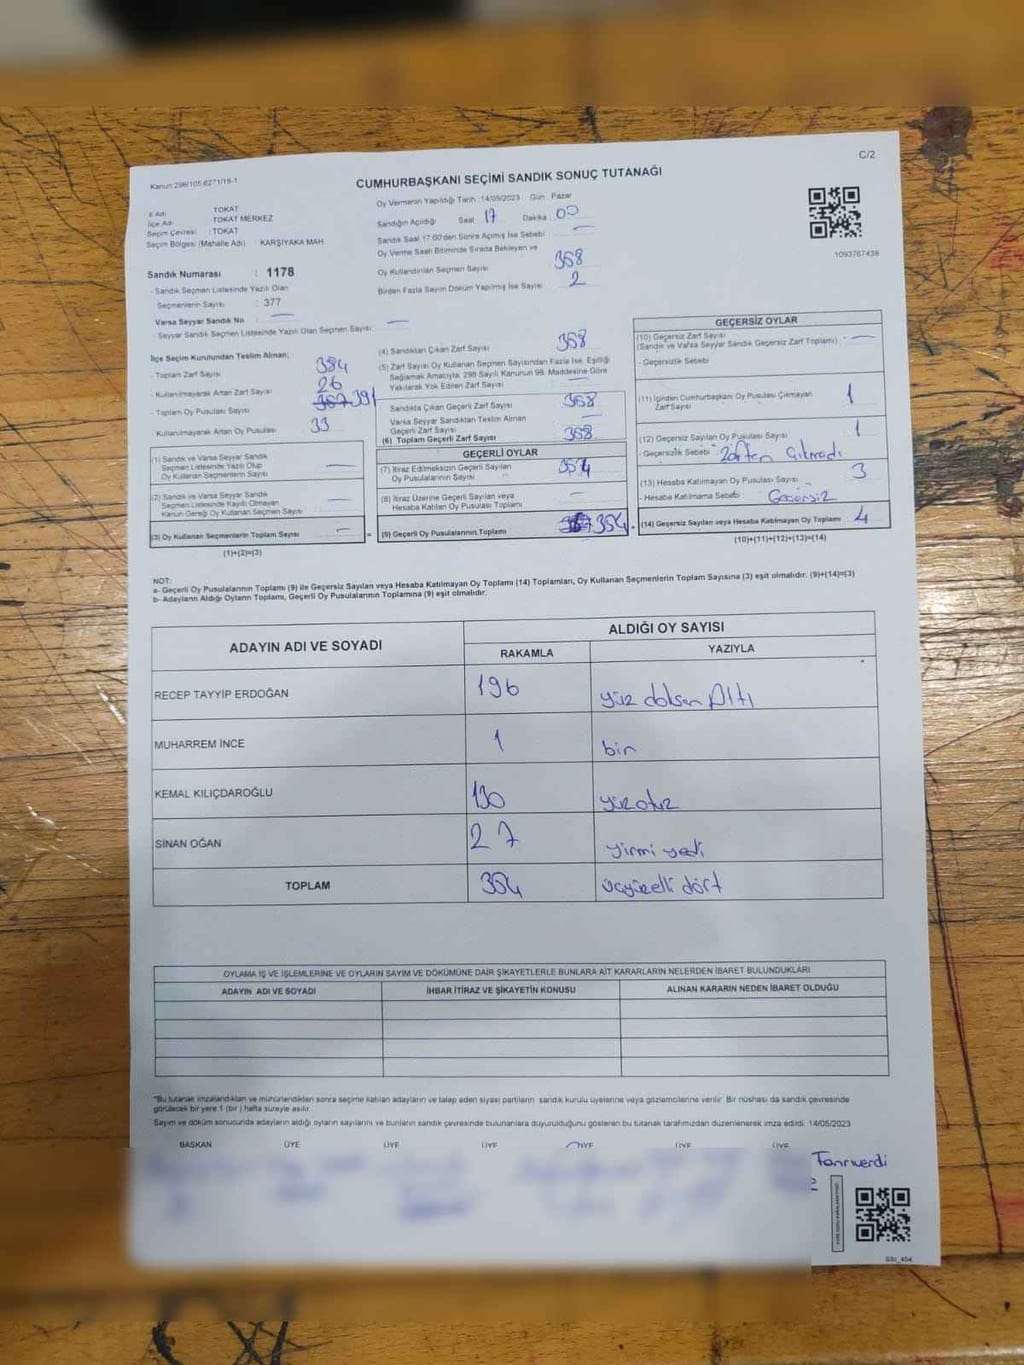 C/2
Kanun 298/105,6271/16-1
CUMHURBAŞKANI SEÇİMİ SANDIK SONUÇ TUTANAĞI
İl Adı : TOKAT
İlçe Adı : TOKAT MERKEZ
Seçim Çevresi : TOKAT
Seçim Bölgesi (Mahalle Adı) : KARŞIYAKA MAH
Sandık Numarası : 1178
- Sandık Seçmen Listesinde Yazılı Olan
Seçmenlerin Sayısı : 377
Varsa Seyyar Sandık No
- Seyyar Sandık Seçmen Listesinde Yazılı Olan Seçmen Sayısı:
Oy Vermenin Yapıldığı Tarih :14/05/2023 Gün : Pazar
Sandığın Açıldığı Saat 17 Dakika 00
Sandık Saat 17:00'den Sonra Açılmış İse Sebebi
Oy Verme Saati Bitiminde Sırada Bekleyen ve
Oy Kullandırılan Seçmen Sayısı 358
Birden Fazla Sayım Döküm Yapılmış İse Sayısı 2
1093767438
İlçe Seçim Kurulundan Teslim Alınan;
- Toplam Zarf Sayısı 384
- Kullanılmayarak Artan Zarf Sayısı 26
- Toplam Oy Pusulası Sayısı 391
- Kullanılmayarak Artan Oy Pusulası 33
(1) Sandık ve Varsa Seyyar Sandık
Seçmen Listesinde Yazılı Olup
Oy Kullanan Seçmenlerin Sayısı
(2) Sandık ve Varsa Seyyar Sandık
Seçmen Listesinde Kayıtlı Olmayan
Kanun Gereği Oy Kullanan Seçmen Sayısı
(3) Oy Kullanan Seçmenlerin Toplam Sayısı
(1)+(2)=(3)
(4) Sandıktan Çıkan Zarf Sayısı 358
(5) Zarf Sayısı Oy Kullanan Seçmen Sayısından Fazla İse, Eşitliği
Sağlamak Amacıyla; 298 Sayılı Kanunun 98. Maddesine Göre
Yakılarak Yok Edilen Zarf Sayısı
Sandıkta Çıkan Geçerli Zarf Sayısı 358
Varsa Seyyar Sandıktan Teslim Alınan
Geçerli Zarf Sayısı
(6) Toplam Geçerli Zarf Sayısı 358
GEÇERLİ OYLAR
(7) İtiraz Edilmeksizin Geçerli Sayılan
Oy Pusulalarının Sayısı 354
(8) İtiraz Üzerine Geçerli Sayılan veya
Hesaba Katılan Oy Pusulası Toplamı
(9) Geçerli Oy Pusulalarının Toplamı 354
GEÇERSİZ OYLAR
(10) Geçersiz Zarf Sayısı
(Sandık ve Varsa Seyyar Sandık Geçersiz Zarf Toplamı)
- Geçersizlik Sebebi
(11) İçinden Cumhurbaşkanı Oy Pusulası Çıkmayan
Zarf Sayısı 1
(12) Geçersiz Sayılan Oy Pusulası Sayısı 1
- Geçersizlik Sebebi Zarftan Çıkmadı
(13) Hesaba Katılmayan Oy Pusulası Sayısı 3
- Hesaba Katılmama Sebebi Geçersiz
(14) Geçersiz Sayılan veya Hesaba Katılmayan Oy Toplamı 4
(10)+(11)+(12)+(13)=(14)
NOT:
a- Geçerli Oy Pusulalarının Toplamı (9) ile Geçersiz Sayılan veya Hesaba Katılmayan Oy Toplamı (14) Toplamları, Oy Kullanan Seçmenlerin Toplam Sayısına (3) eşit olmalıdır. (9)+(14)=(3)
b- Adayların Aldığı Oyların Toplamı, Geçerli Oy Pusulalarının Toplamına (9) eşit olmalıdır.
ADAYIN ADI VE SOYADI
ALDIĞI OY SAYISI
RAKAMLA YAZIYLA
RECEP TAYYİP ERDOĞAN 196 yüz doksan Altı
MUHARREM İNCE 1 bir
KEMAL KILIÇDAROĞLU 130 yüzotuz
SİNAN OĞAN 27 yirmi yedi
TOPLAM 354 üçyüzelli dört
OYLAMA İŞ VE İŞLEMLERİNE VE OYLARIN SAYIM VE DÖKÜMÜNE DAİR ŞİKAYETLERLE BUNLARA AİT KARARLARIN NELERDEN İBARET BULUNDUKLARI
ADAYIN ADI VE SOYADI İHBAR İTİRAZ VE ŞİKAYETİN KONUSU ALINAN KARARIN NEDEN İBARET OLDUĞU
*Bu tutanak imzalandıktan ve mühürlendikten sonra seçime katılan adayların ve talep eden siyasi partilerin sandık kurulu üyelerine veya gözlemcilerine verilir. Bir nüshası da sandık çevresinde
görülecek bir yere 1 (bir) hafta süreyle asılır.
Sayım ve döküm sonucunda adayların aldığı oyların sayılarını ve bunların sandık çevresinde bulunanlara duyurulduğunu gösteren bu tutanak tarafımızdan düzenlenerek imza edildi. 14/05/2023
BAŞKAN ÜYE ÜYE ÜYE ÜYE ÜYE ÜYE
Tanrıverdi